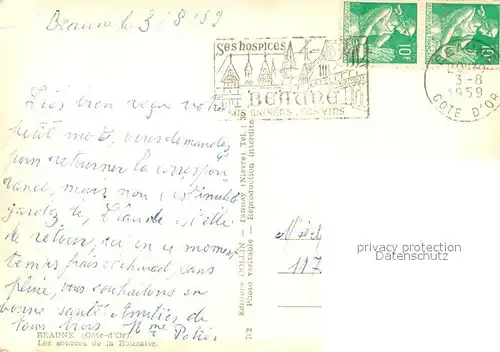 Beaune le 3/8/59
Ses hospices
BEAUNE
SES VINS
10F
10F
3-8
1959
COTE D'OR
Très bien reçu votre
petit mot, vous demandez
pour retourner la correspon
dance, mais non c'est inutile
gardez la, Claude est-elle
de retour, ici en ce moment
temps frais et chaud, sans
pluie, vous souhaitons en
bonne santé Amitiés de
tous trois Mme
BEAUNE (Côte-d'Or)
Les sources de la Bouzaise.
712
Editions COLLIN — (Nièvre) Tél. 39
Photo véritable — Reproduction Interdite
117
privacy protection